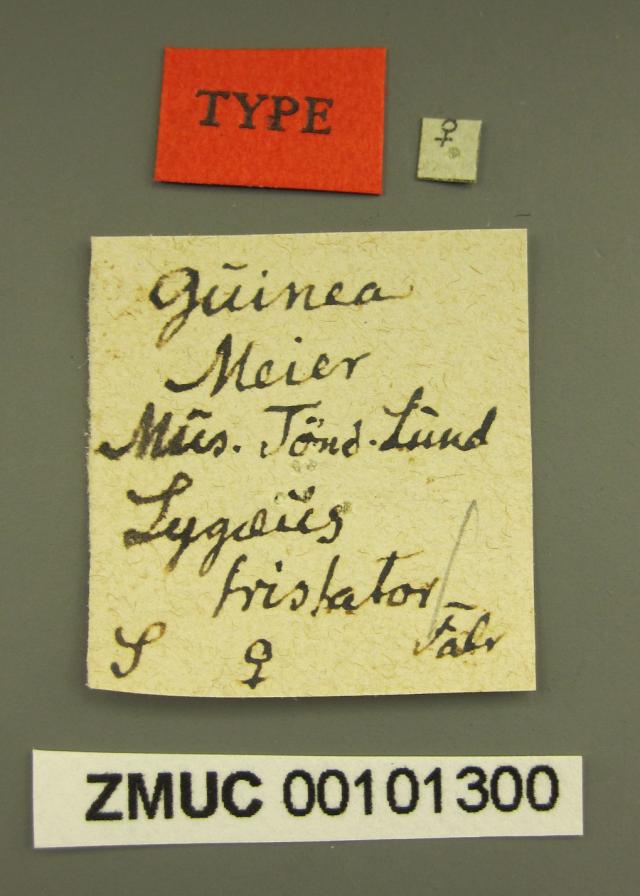 TYPE
♀
Gũinea
Meier
Mũs. Tönd. Lũnd
Lygæũs
tristator
S ♀ Fabr
ZMUC 00101300